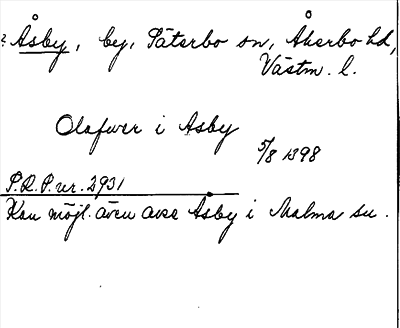 ? Åsby, by, Säterbo sn, Åkerbo hd,
Västm. l.
Olafwer i Asby
5/8 1398
P.R.P. nr. 2931
Kan möjl. även avse Åsby i Malma sn.